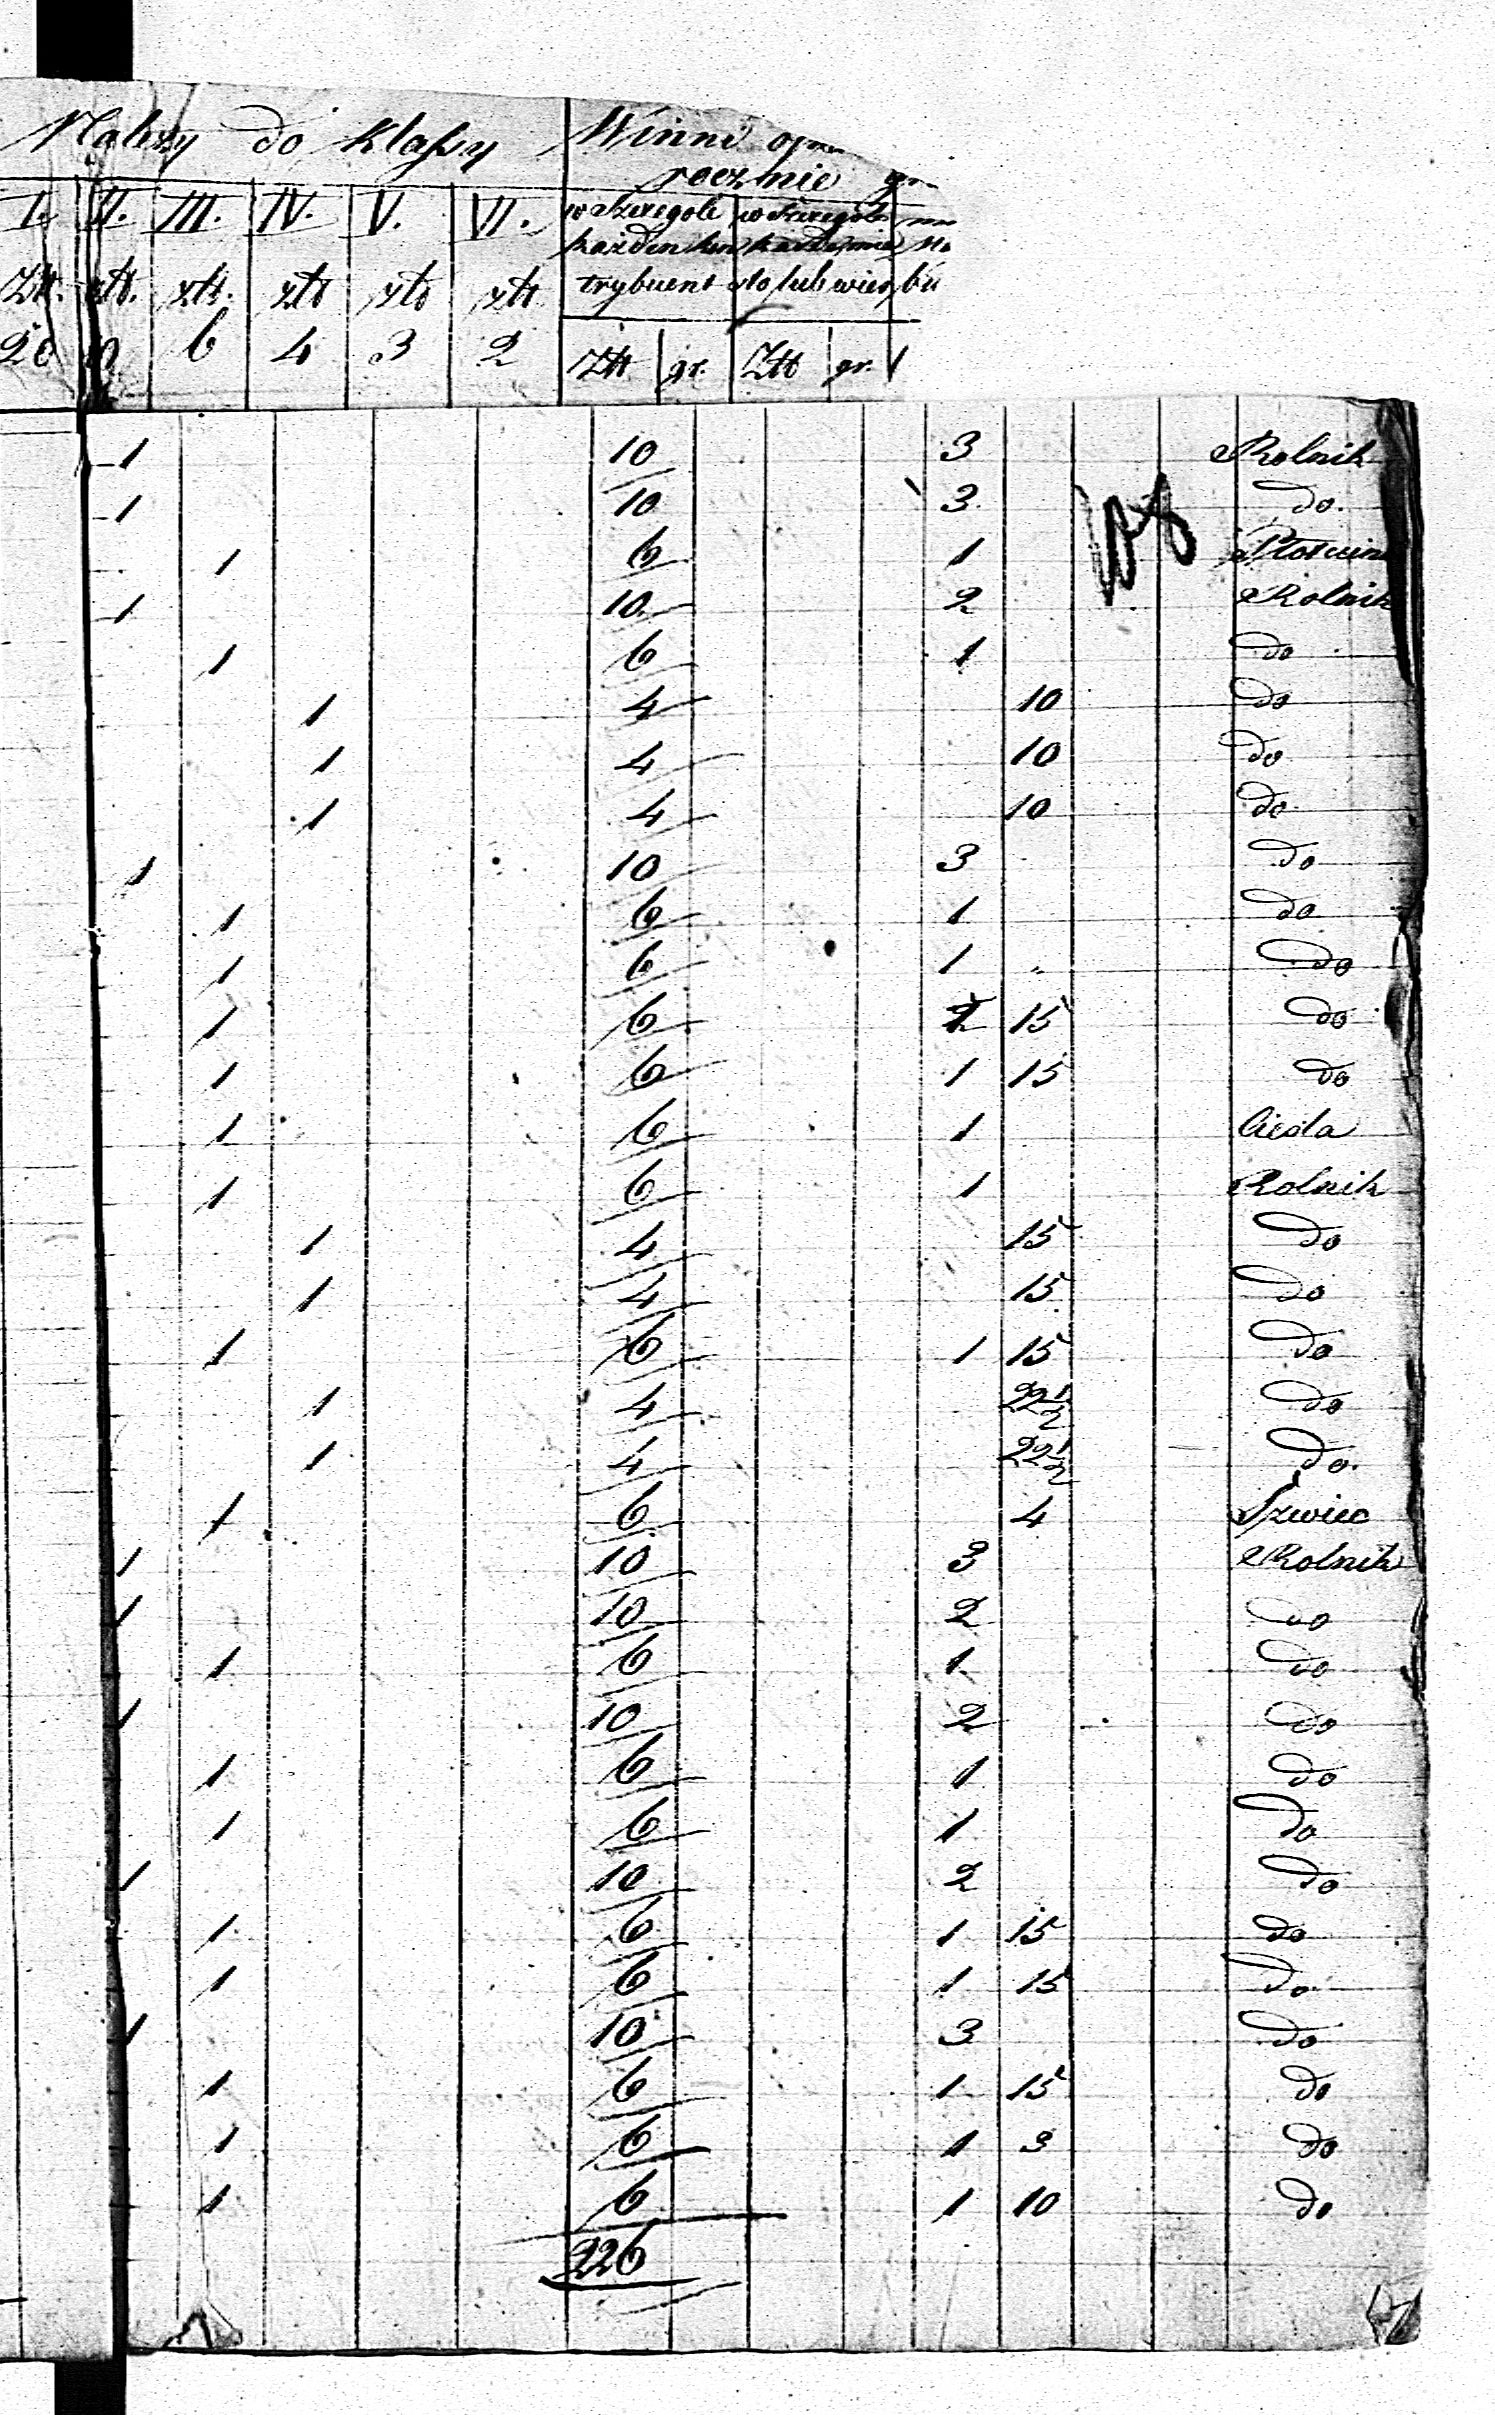 Należy do klassy Winni
rocznie
I. II. III. IV. V. VI. w szczególe w szczególe
każden kon
trybuent sto lub wiey bu
Złt. złt. złt. złt złt złt
20 10 6 4 3 2 Złt gr. Złt gr.
1 10 3 Rolnik
1 10 3 do.
1 6 1
1 10 2 Rolnik
1 6 1 do
1 4 10 do
1 4 10 do
1 4 10 do
1 10 3 do
1 6 1 do
1 6 1 do
1 6 15 do
1 6 1 15 do
1 6 1 Cieśla
1 6 1 Rolnik
1 4 15 do
1 4 15 do
1 6 1 15 do
1 4 22 1/2 do
1 4 22 1/2 do.
1 6 4 Szwiec
1 10 3 Rolnik
1 10 2 do
1 6 1 do
1 10 2 do
1 6 1 do
1 6 1 do
1 10 2 do
1 6 1 15 do
1 6 1 15 do
1 10 3 do
1 6 1 15 do
1 6 1 3 do
1 6 1 10 do
226